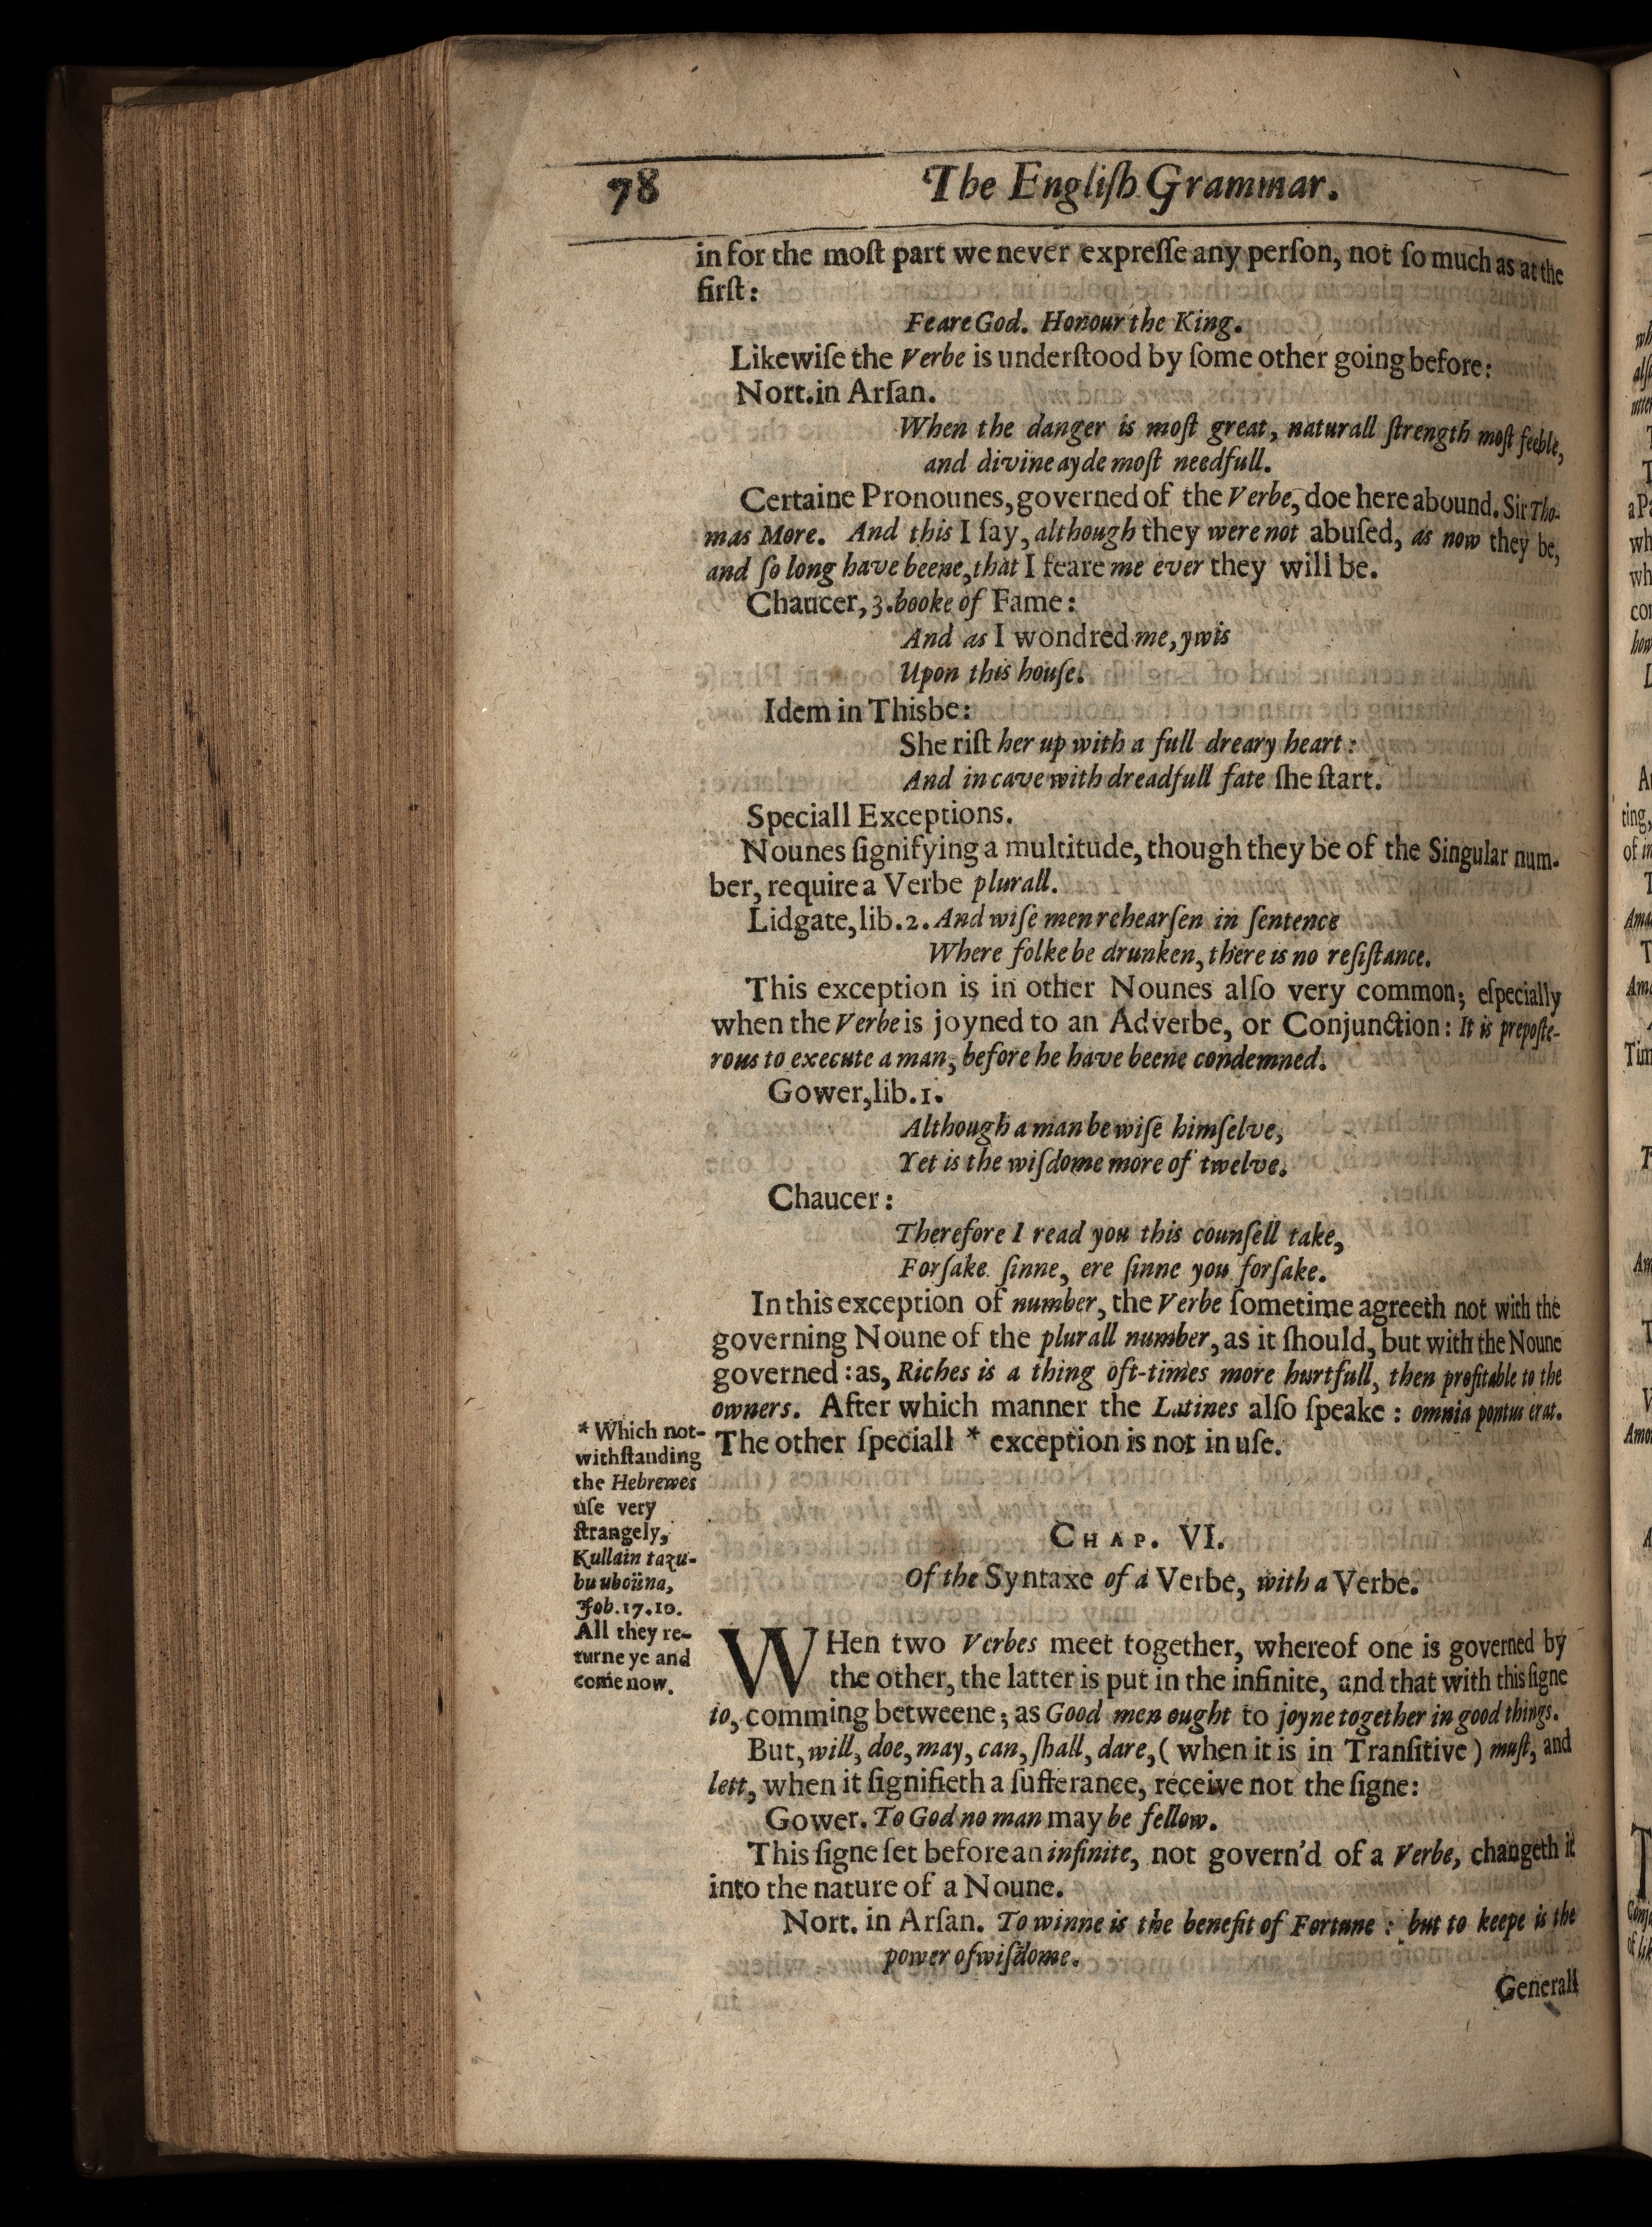 78
The Engliſh Grammar.
in for the moſt part we never expreſſe any perſon, not ſo much as at the
firſt:
Feare God. Honour the King.
Likewiſe the Verbe is underſtood by ſome other going before:
Nort. in Arſan.
When the danger is moſt great, naturall ſtrength moſt feeble,
and divine ayde moſt needfull.
Certaine Pronounes, governed of the Verbe, doe here abound. Sir Tho-
mas More. And this I ſay, although they were not abuſed, as now they be,
and ſo long have beene, that I feare me ever they will be.
Chaucer, 3. booke of Fame:
And as I wondred me, ywis
Upon this houſe.
Idem in Thisbe:
She riſt her up with a full dreary heart:
And in cave with dreadfull fate ſhe ſtart.
Speciall Exceptions.
Nounes ſignifying a multitude, though they be of the Singular num-
ber, require a Verbe plurall.
Lidgate, lib. 2. And wiſe men rehearſen in ſentence
Where folke be drunken, there is no reſiſtance.
This exception is in other Nounes alſo very common; eſpecially
when the Verbe is joyned to an Adverbe, or Conjunction: It is prepoſte-
rous to execute a man, before he have beene condemned.
Gower, lib. 1.
Although a man be wiſe himſelve,
Yet is the wiſdome more of twelve.
Chaucer:
Therefore I read you this counſell take,
Forſake ſinne, ere ſinne you forſake.
In this exception of number, the Verbe ſometime agreeth not with the
governing Noune of the plurall number, as it ſhould, but with the Noune
governed: as, Riches is a thing oft-times more hurtfull, then profitable to the
owners. After which manner the Latines alſo ſpeake: omnia pontus erat.
The other ſpeciall * exception is not in uſe.
* Which not-
withſtanding
the Hebrewes
uſe very
ſtrangely,
Kullain tazu-
bu uboüna,
Job. 17. 10.
All they re-
turne ye and
come now.
CHAP. VI.
Of the Syntaxe of a Verbe, with a Verbe.
WHen two Verbes meet together, whereof one is governed by
the other, the latter is put in the infinite, and that with this ſigne
to, comming betweene; as Good men ought to joyne together in good things.
But, will, doe, may, can, ſhall, dare, (when it is in Tranſitive) muſt, and
lett, when it ſignifieth a ſufferance, receive not the ſigne:
Gower. To God no man may be fellow.
This ſigne ſet before an infinite, not govern'd of a Verbe, changeth it
into the nature of a Noune.
Nort. in Arſan. To winne is the benefit of Fortune: but to keepe is the
power of wiſdome.
Generall